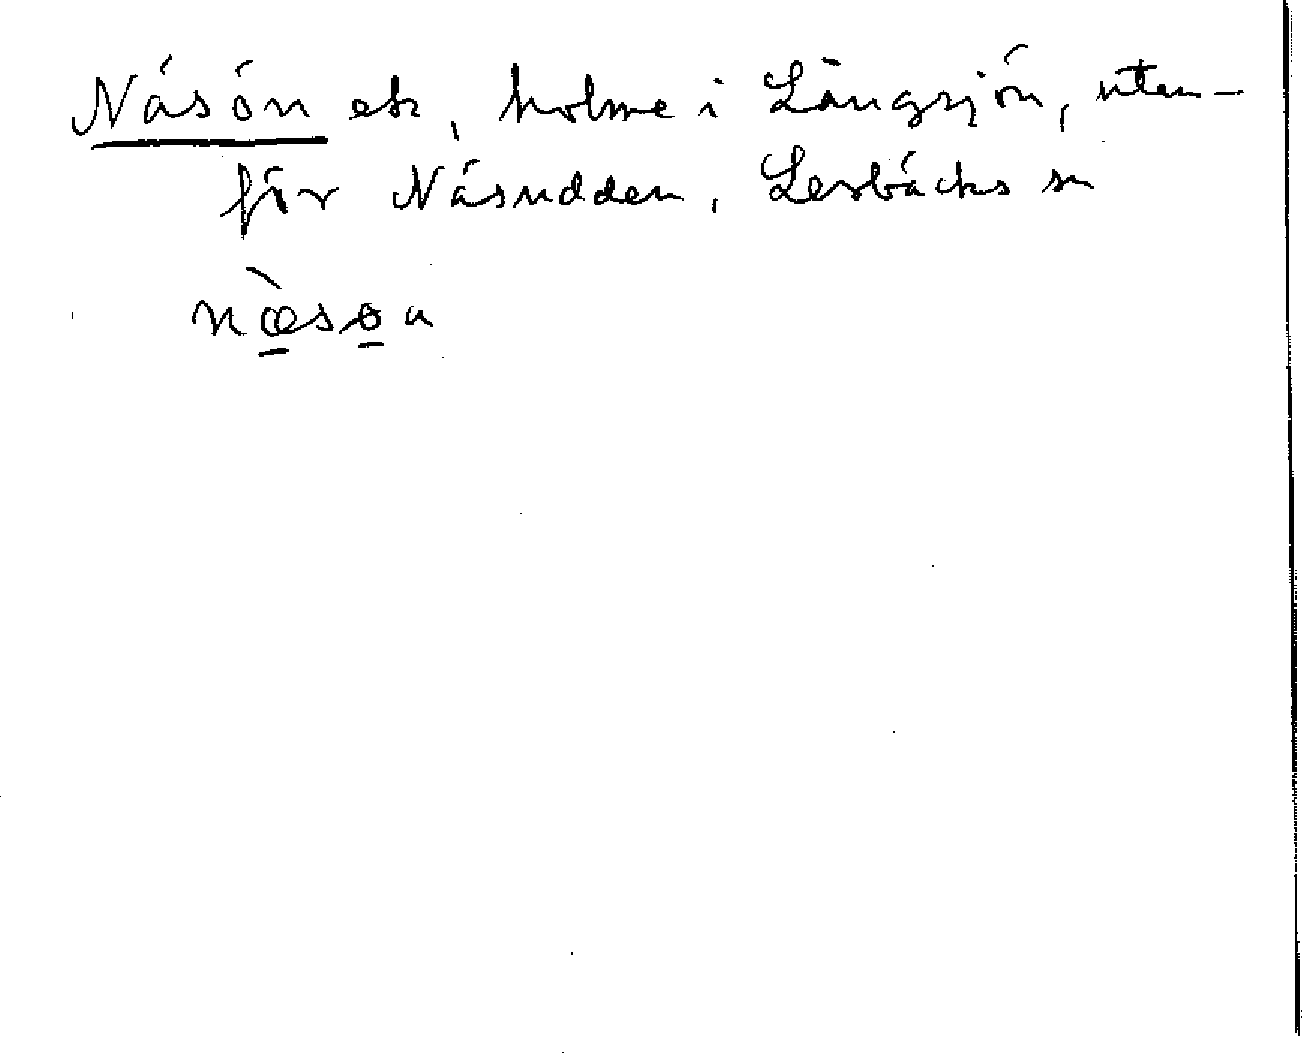 Näsön ek, holme i Långsjön, utan-
för Näsudden, Lerbäcks sn
næ̀søa